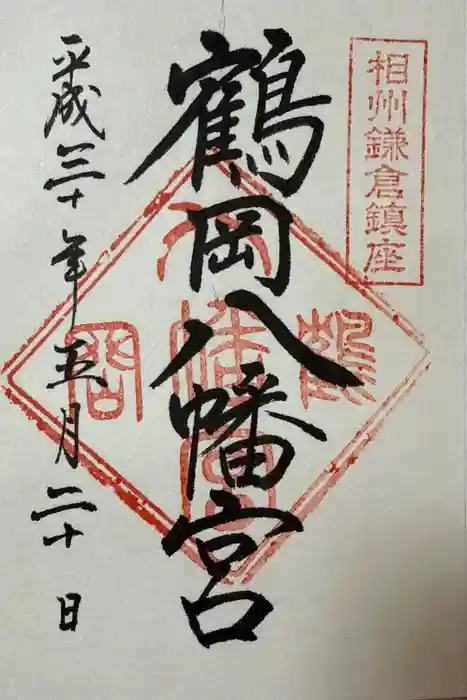 相州鎌倉鎮座
鶴岡八幡宮
平成三十年五月二十日